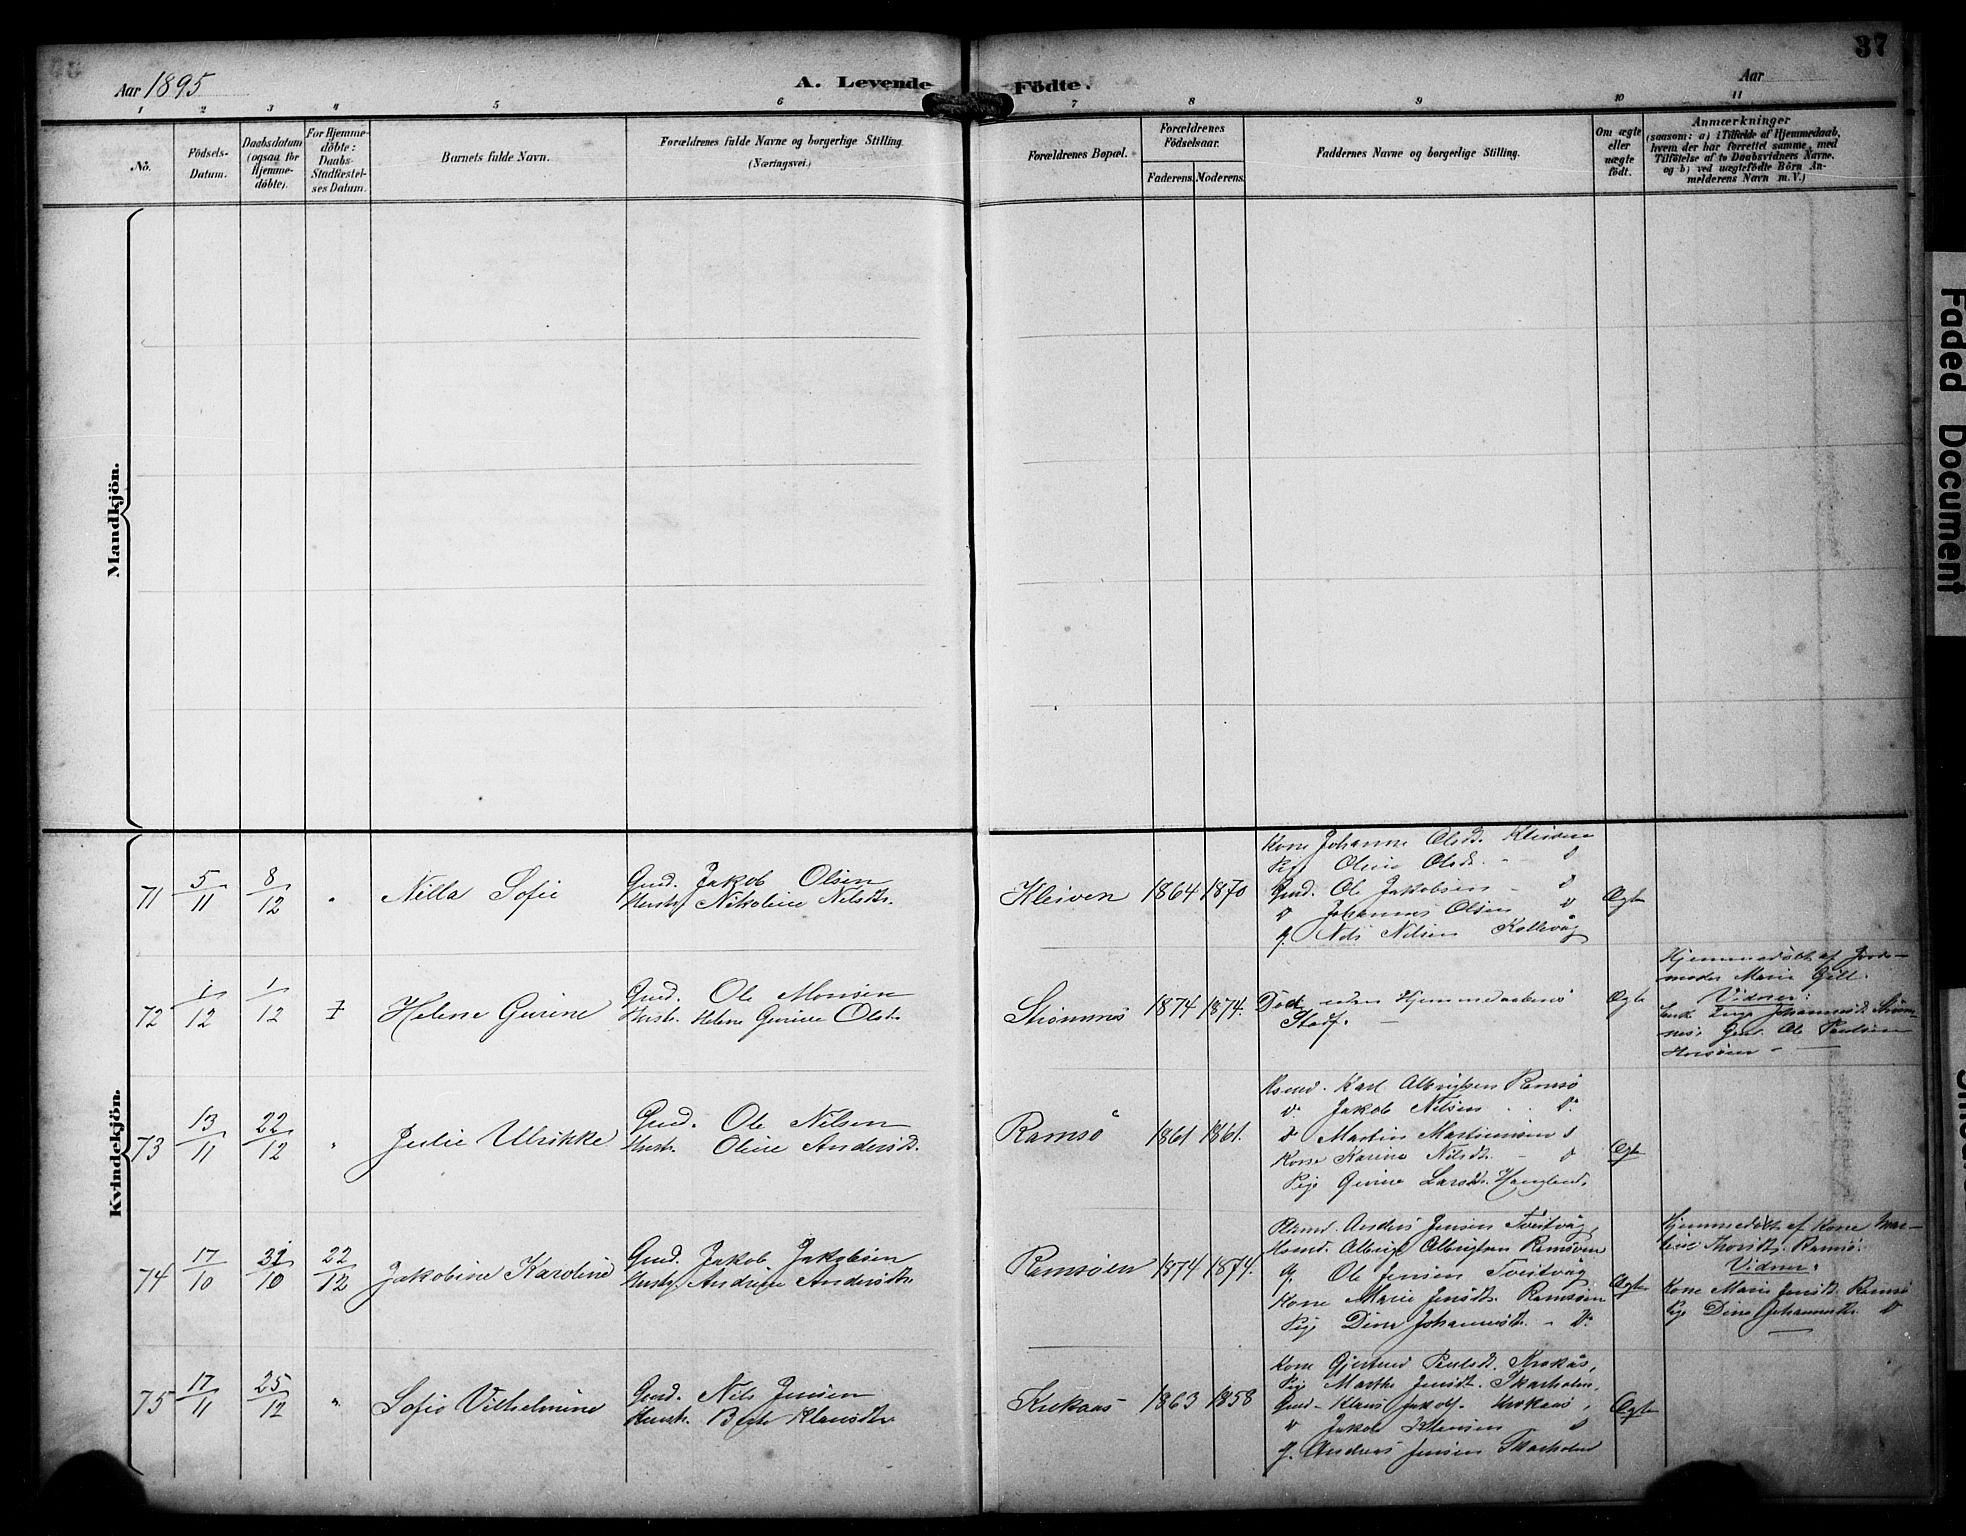 Aar 1895
A. Levende Födte.
Aar
37
1 2 3 4 5 6 7 8 9 10 11
No.
Födsels-
Datum.
Daabsdatum
(ogsaa for
Hjemme-
döbte).
For Hjemme-
döbte:
Daabs-
Stadfæstel-
ses Datum.
Barnets fulde Navn.
Forældrenes fulde Navne og borgerlige Stilling.
(Næringsvei.)
Forældrenes Bopæl.
Forældrenes
Födselsaar.
Faderens. Moderens.
Faddernes Navne og borgerlige Stilling.
Om ægte
eller
uægte
födt.
Anmærkninger
(saasom: a) i Tilfælde af Hjemmedaab,
hvem der har forrettet samme, med
Tilföielse af to Daabsvidners Navne.
og b) ved uægtefödte Börn An-
melderens Navn m. V.)
Mandkjön.
Kvindekjön.
71 5/11 8/12 " Nilla Sofie
Gmd. Jakob Olsen
Hustr. Nikoline Nilsdtr.
Kleiven 1864 1870
Kone Johanne Olsdt. Kleiven
Pige Oline Olsdt. - D
Gmd. Ole Jakobsen - D
D Johannes Olsen D
G. Nils Nilsen Kollevåg
Ægte
72 1/12 1/12 Helene Gurine
Gmd. Ole Monsen
Hustr. Helene Gurine Olsdtr.
Strömnes 1874 1874.
Död uden Hjemmedaabens
Stadf. -
Ægte
Hjemmedöbt af Jorde-
moder Marie
Vidner:
Enke Johannesdt. Ström-
nes, Gmd. Ole Paulsen
73 13/11 22/12 " Julie Ulrikke
Gmd. Ole Nilsen
Hustr. Oline Andersdt.
Ramsö 1861 1861.
Kmd. Karl Albrigtsen Ramsö
D. Jakob Nilsen D.
D Martin Martinusen D
Kone Karine Nilsdt. - D
Pige Gurine Larsdt.
Ægte
74 17/10 31/10 22/12 Jakobine Karoline
Gmd. Jakob Jakobsen
Hustr. Andrine Andersdtr.
Ramsöen 1874 1874.
Anders Jensen Tveitvåg,
Albrigt Albrigtsen Ramsöen
G. Ole Jensen Tveitvåg
Kone Marie Jensdt. Ramsöen
Pige Dina Johannesdtr. - D.
Ægte
Hjemmedöbt af Kone
Thorsdt. Ramsö.
Vidner:
Kone Marie Jensdt. Ramsö
Pige Dina Johannesdtr. D
75 17/11 25/12 " Sofie Vilhelmine
Gmd. Nils Jensen
Hustr. Klausdtr.
Krokaas 1863 1858
Kone Gjertrud Paulsdt. Krokås,
Pige Marthe Jensdt. Skarholm,
Gmd. Klaus Jakobs. Krokaas,
D Jakob Klausen D
G. Andreas Jensen Skarholm
Ægte
Faded Document